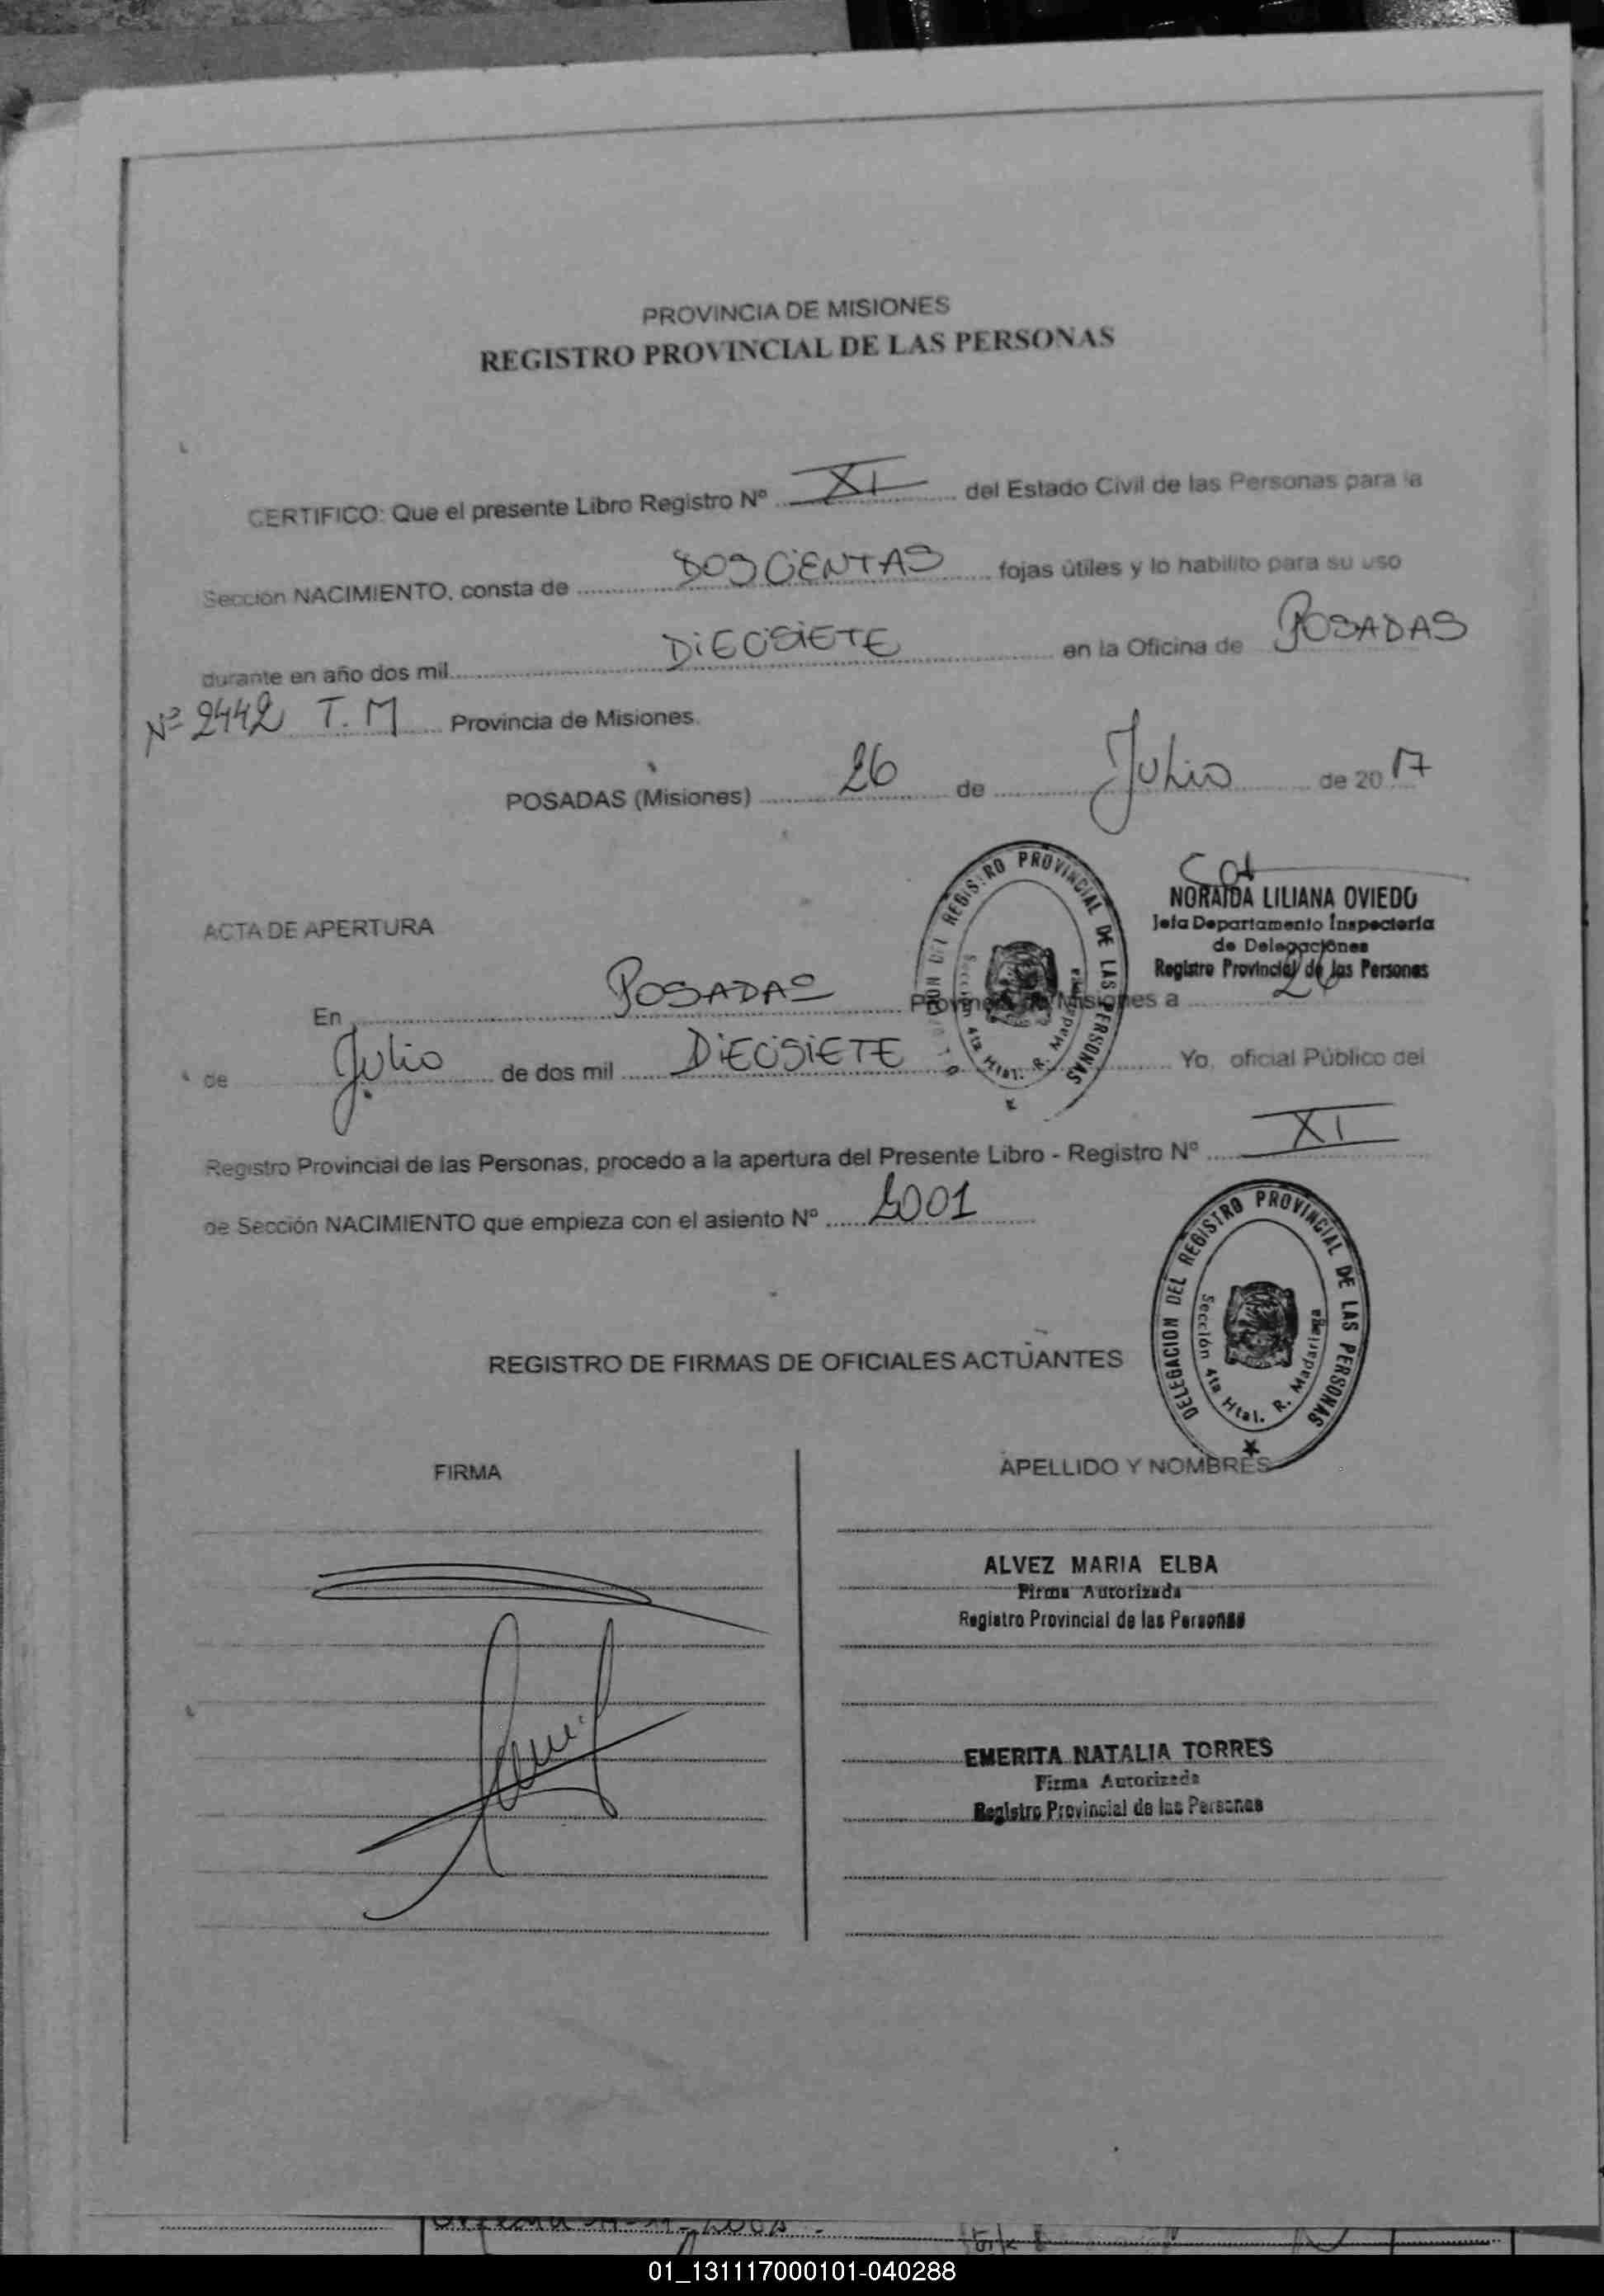 PROVINCIA DE MISIONES
REGISTRO PROVINCIAL DE LAS PERSONAS
CERTIFICO: Que el presente Libro Registro Nº XI del Estado Civil de las Personas para la
Sección NACIMIENTO, consta de DOSCIENTAS fojas útiles y lo habilito para su uso
durante en año dos mil DIECISIETE en la Oficina de POSADAS
Nº 2442 T.M Provincia de Misiones.
POSADAS (Misiones) 26 de Julio de 2017
NORAIDA LILIANA OVIEDO
Jefa Departamento Inspectoría
de Delegaciones
Registro Provincial de las Personas
DELEGACION DEL REGISTRO PROVINCIAL DE LAS PERSONAS
Sección 4ta Htal. R. Madariaga
ACTA DE APERTURA
En POSADAS Provincia de Misiones a 26
de Julio de dos mil DIECISIETE Yo, oficial Público del
Registro Provincial de las Personas, procedo a la apertura del Presente Libro - Registro Nº XI
de Sección NACIMIENTO que empieza con el asiento Nº 2001
DELEGACION DEL REGISTRO PROVINCIAL DE LAS PERSONAS
Sección 4ta Htal. R. Madariaga
REGISTRO DE FIRMAS DE OFICIALES ACTUANTES
FIRMA APELLIDO Y NOMBRES
ALVEZ MARIA ELBA
Firma Autorizada
Registro Provincial de las Personas
EMERITA NATALIA TORRES
Firma Autorizada
Registro Provincial de las Personas
01_131117000101-040288